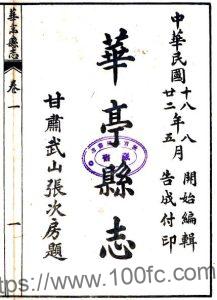 中華民國
十八年八月 開始編輯
廿二年五月 告成付印
華亭縣志
甘肅武山張次房題
華亭縣志
卷一
一
https://www.100fc.com